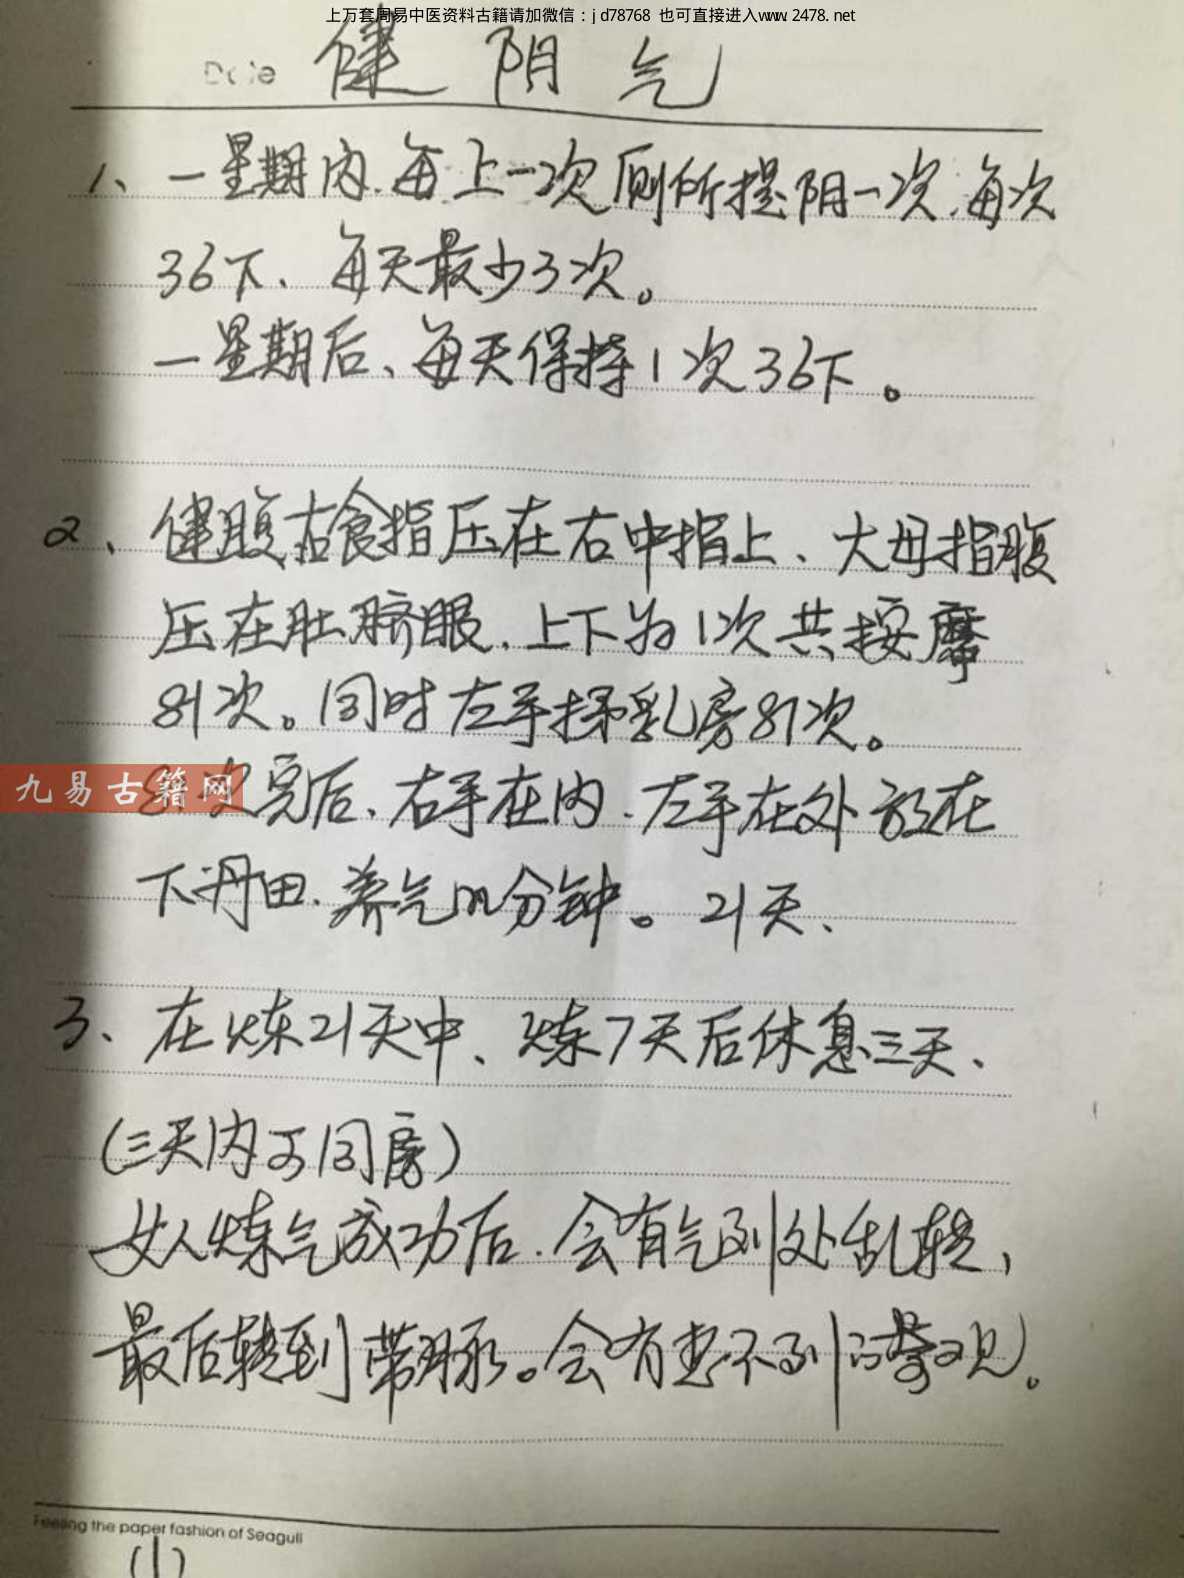 上万套周易中医资料古籍请加微信：jd78768 也可直接进入www.2478.net
Date 健阴气
1、一星期内.每上一次厕所提阴一次.每次
36下、每天最少3次。
一星期后、每天保持1次36下。
2、健腹右食指压在右中指上、大母指腹
压在肚脐眼.上下为1次共按摩
81次。同时左手揉乳房81次。
九易古籍网
81次完后、右手在内.左手在外放在
下丹田.养气几分钟。21天、
3、在炼21天中、炼7天后休息三天、
(三天内可同房)
女人炼气成功后.会有气到处乱转,
最后转到带脉。会有想不到的景观。
Feeling the paper fashion of Seagull
(1)